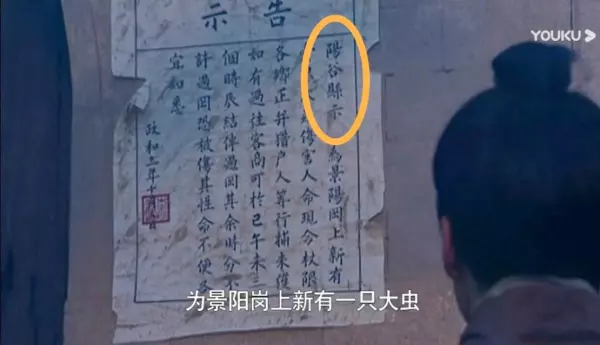 YOUKU
告示
陽谷縣示 為景陽岡上新有
傷害人命現今杖限
各鄉正并猎户人等行捕未
如有過往客商可於巳午未
個時辰結伴過岡其余時分不
許過岡恐被傷其性命不便
宜知悉
政和三年十月
为景阳岗上新有一只大虫